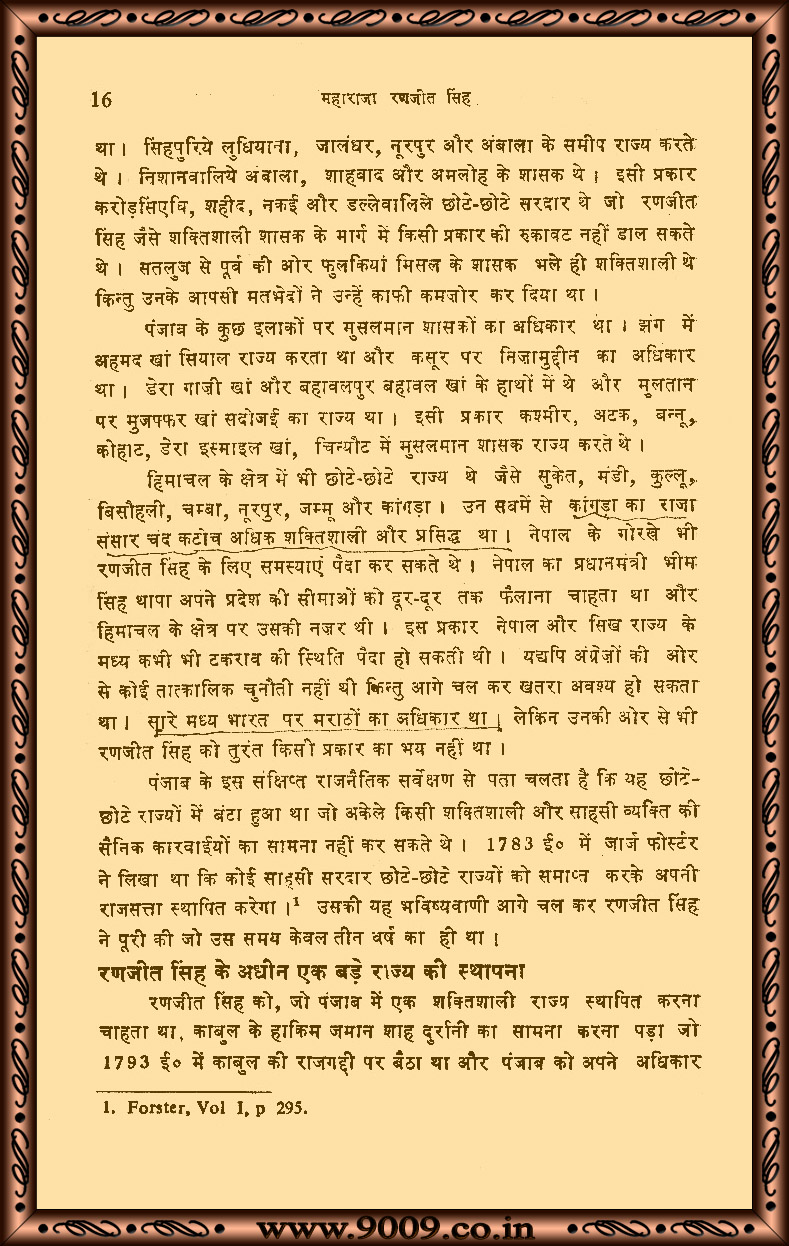 16 महाराजा रणजीत सिंह
था। सिंहपुरिये लुधियाना, जालंधर, नूरपुर और अंबाला के समीप राज्य करते
थे। निशानवालिये अंबाला, शाहवाद और अमलोह के शासक थे। इसी प्रकार
करोड़सिंएधि, शहीद, नकई और डल्लेवालिले छोटे-छोटे सरदार थे जो रणजीत
सिंह जैसे शक्तिशाली शासक के मार्ग में किसी प्रकार की रुकावट नहीं डाल सकते
थे। सतलुज से पूर्व की ओर फुलकियां मिसल के शासक भले ही शक्तिशाली थे
किन्तु उनके आपसी मतभेदों ने उन्हें काफी कमज़ोर कर दिया था।
पंजाब के कुछ इलाकों पर मुसलमान शासकों का अधिकार था। झंग में
अहमद खां सियाल राज्य करता था और कसूर पर निज़ामुद्दीन का अधिकार
था। डेरा गाज़ी खां और बहावलपुर बहावल खां के हाथों में थे और मुलतान
पर मुजफ्फर खां सदोजई का राज्य था। इसी प्रकार कश्मीर, अटक, बन्नू,
कोहाट, डेरा इस्माइल खां, चिन्यौट में मुसलमान शासक राज्य करते थे।
हिमाचल के क्षेत्र में भी छोटे-छोटे राज्य थे जैसे सुकेत, मंडी, कुल्लू,
बिसौहली, चम्बा, नूरपुर, जम्मू और कांगड़ा। उन सबमें से कांगड़ा का राजा
संसार चंद कटोच अधिक शक्तिशाली और प्रसिद्ध था। नेपाल के गोरखे भी
रणजीत सिंह के लिए समस्याएं पैदा कर सकते थे। नेपाल का प्रधानमंत्री भीम
सिंह थापा अपने प्रदेश की सीमाओं को दूर-दूर तक फैलाना चाहता था और
हिमाचल के क्षेत्र पर उसकी नज़र थी। इस प्रकार नेपाल और सिख राज्य के
मध्य कभी भी टकराव की स्थिति पैदा हो सकती थी। यद्यपि अंग्रेज़ों की ओर
से कोई तात्कालिक चुनौती नहीं थी किन्तु आगे चल कर खतरा अवश्य हो सकता
था। सारे मध्य भारत पर मराठों का अधिकार था। लेकिन उनकी ओर से भी
रणजीत सिंह को तुरंत किसी प्रकार का भय नहीं था।
पंजाब के इस संक्षिप्त राजनैतिक सर्वेक्षण से पता चलता है कि यह छोटे-
छोटे राज्यों में बंटा हुआ था जो अकेले किसी शक्तिशाली और साहसी व्यक्ति की
सैनिक कारवाईयों का सामना नहीं कर सकते थे। 1783 ई० में जार्ज फोर्स्टर
ने लिखा था कि कोई साहसी सरदार छोटे-छोटे राज्यों को समाप्त करके अपनी
राजसत्ता स्थापित करेगा।¹ उसकी यह भविष्यवाणी आगे चल कर रणजीत सिंह
ने पूरी की जो उस समय केवल तीन वर्ष का ही था।
रणजीत सिंह के अधीन एक बड़े राज्य की स्थापना
रणजीत सिंह को, जो पंजाब में एक शक्तिशाली राज्य स्थापित करना
चाहता था, काबुल के हाकिम जमान शाह दुर्रानी का सामना करना पड़ा जो
1793 ई० में काबुल की राजगद्दी पर बैठा था और पंजाब को अपने अधिकार
1. Forster, Vol I, p 295.
www.9009.co.in